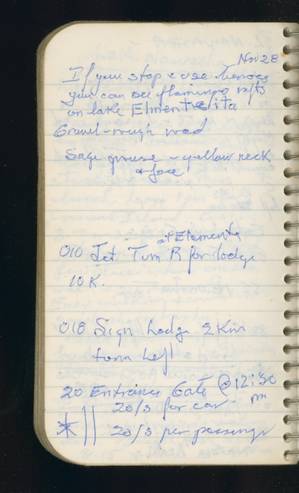 Nov 28
If you stop & use binocs
you can see flamingo rafts
on lake Elmentetita
Gravel-rough road
Sage grouse - yellow neck
& face
at Elementa
010 Jct Turn R for lodge
10 K.
018 Sign Lodge 2 Km
turn left
20 Entrance Gate @ 12:30 pm
20/s for car
20/s per passenger